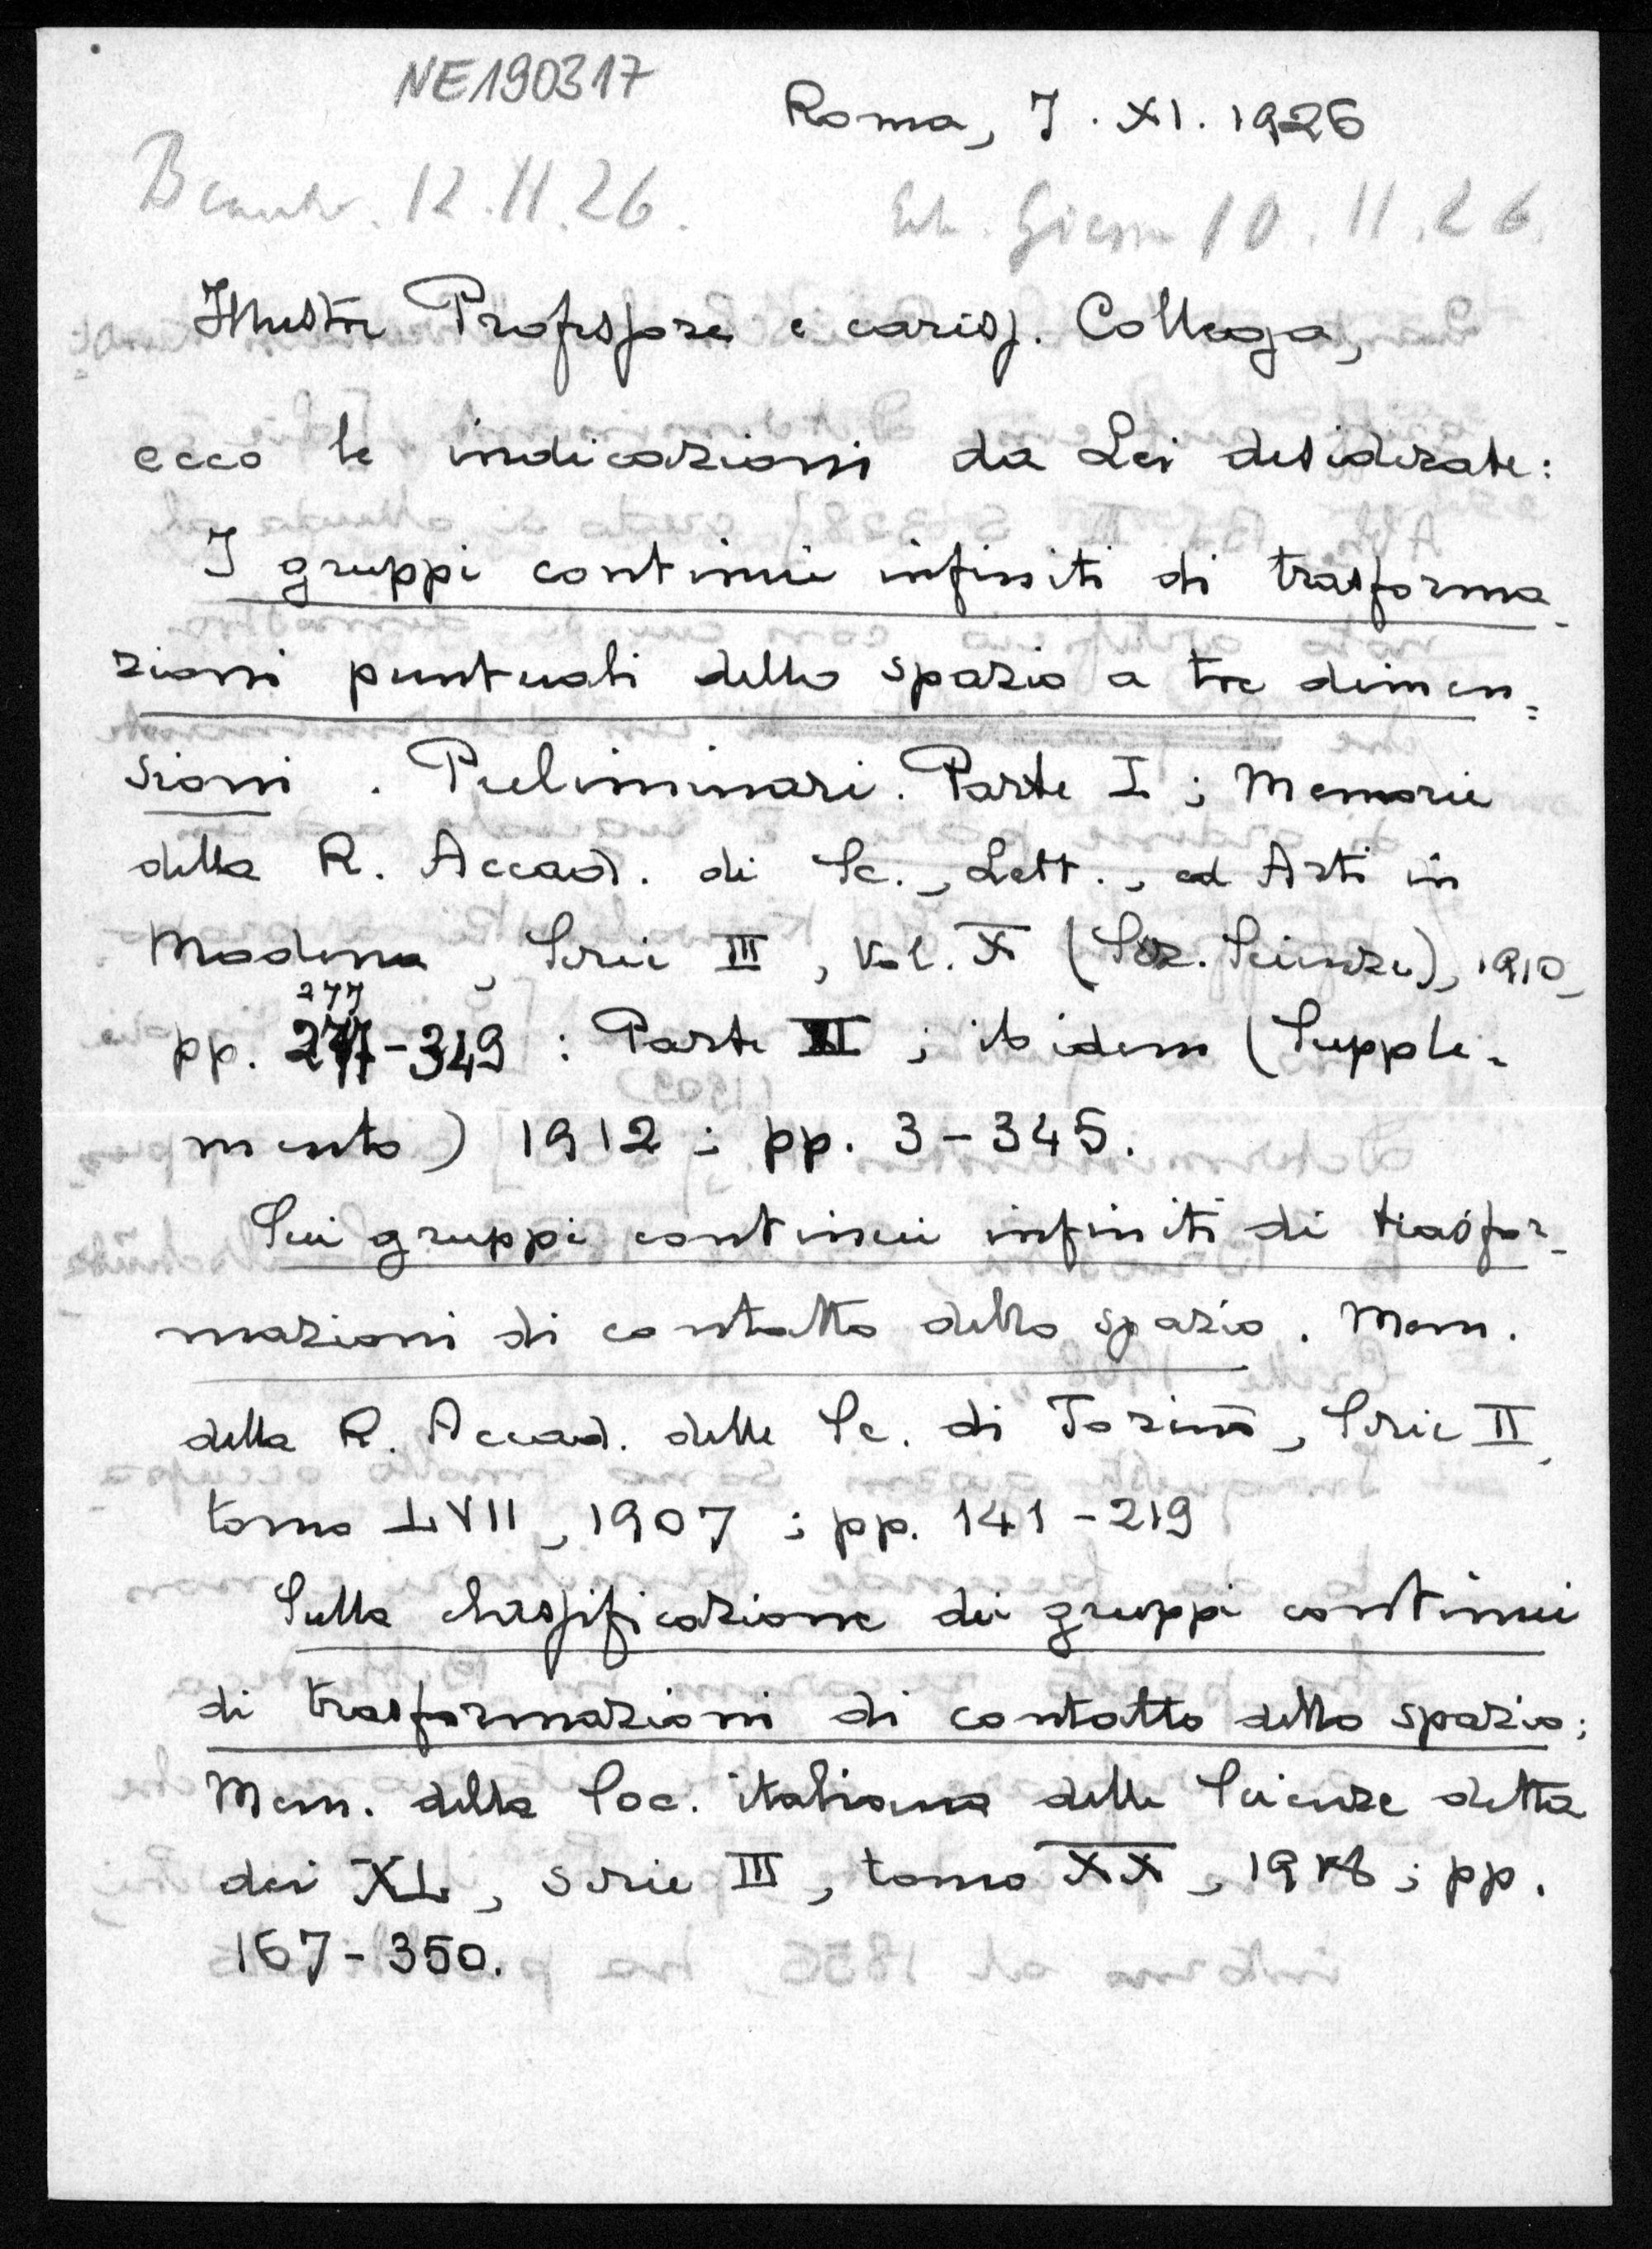 NE190317
Roma, 7. XI. 1926
Beantw. 12.11.26.
Erh. Giessen 10.11.26.
Illustre Professore e cariss. Collega,
ecco le indicazioni da Lei desiderate:
I gruppi continui infiniti di trasforma-
zioni puntuali dello spazio a tre dimen=
sioni. Preliminari. Parte I; Memorie
della R. Accad. di Sc., Lett., ed Arti in
Modena, Serie III, Vol. X (Sez. Scienze), 1910,
277
pp. 277-349: Parte II; ibidem (Supple-
mento) 1912; pp. 3-345.
Sui gruppi continui infiniti di trasfor-
mazioni di contatto dello spazio. Mem.
della R. Accad. delle Sc. di Torino, Serie II,
tomo LVII, 1907; pp. 141-219
Sulla classificazione dei gruppi continui
di trasformazioni di contatto dello spazio;
Mem. della Soc. italiana delle Scienze detta
dei XL, serie III, tomo XX, 1918; pp.
167-350.